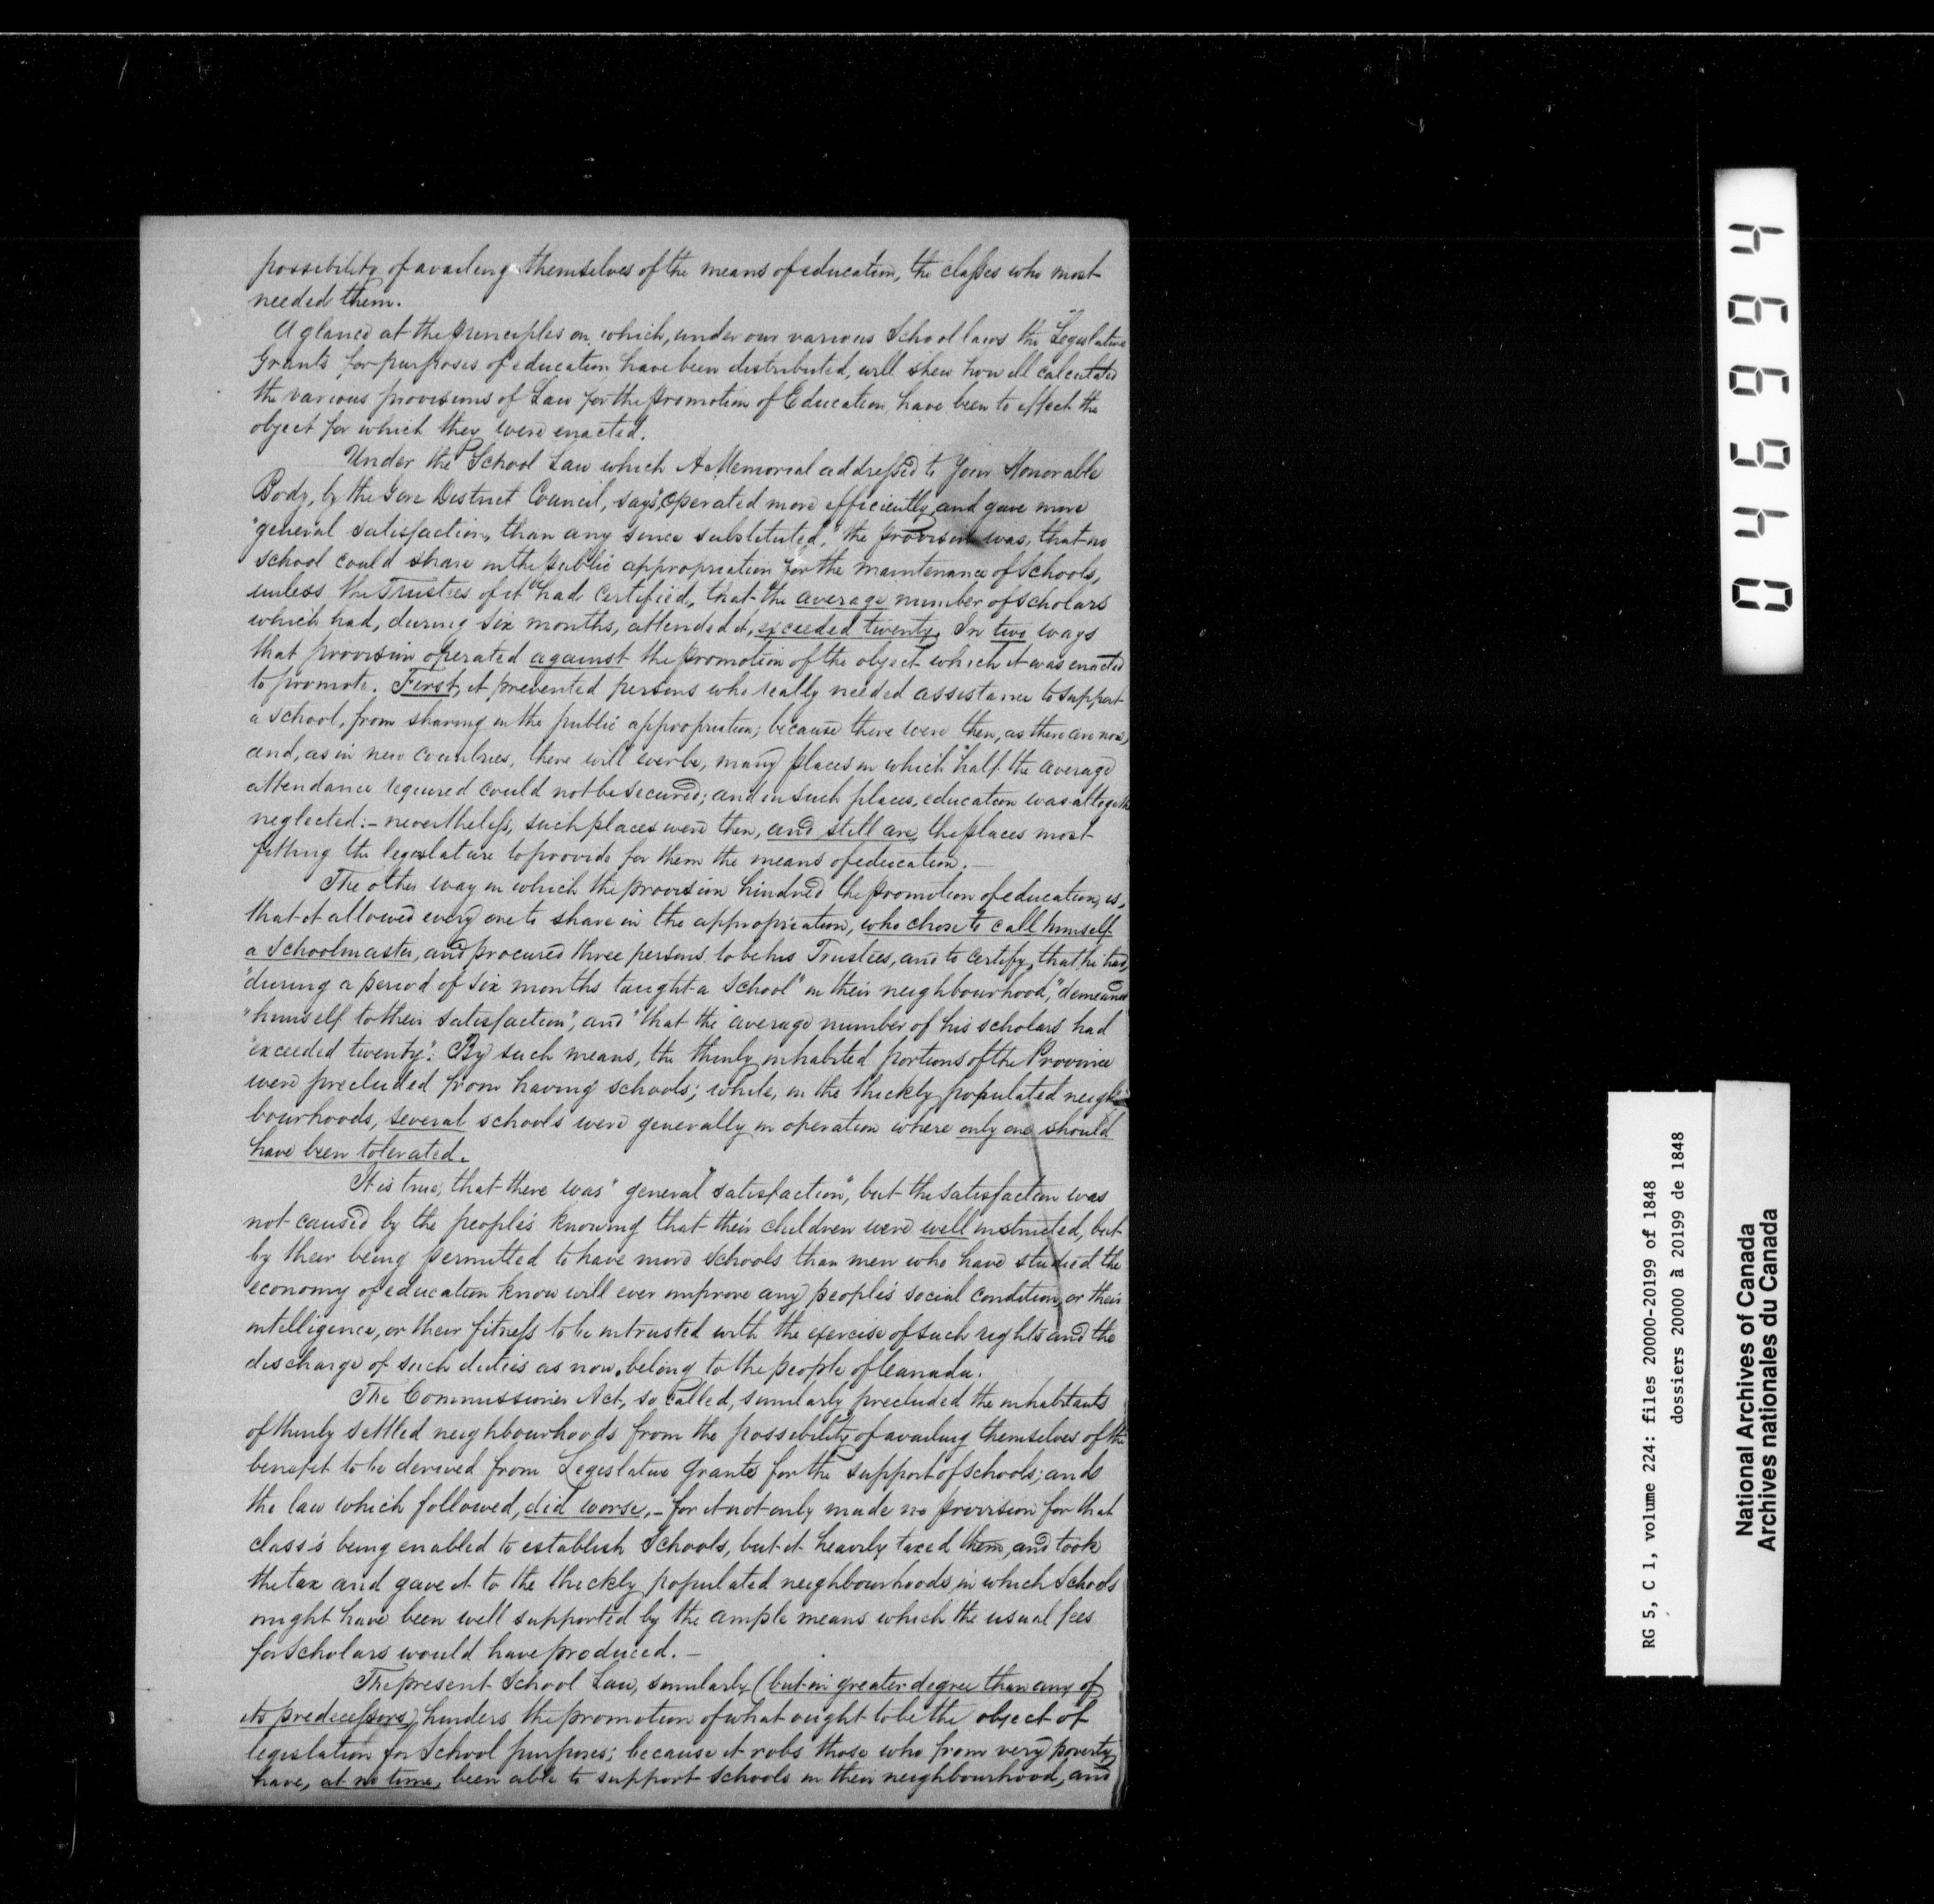 possibility of availing themselves of the means of education, the classes who most
needed them.
A glance at the principles on which, under our various School laws the Legislative
Grants for purposes of education have been distributed, will shew how ill calculated
the various provisions of Law for the promotion of Education, have been to effect the
object for which they were enacted.
Under the School Law which A Memorial addressed to Your Honorable
Body, by the Gore District Council, says, "operated more efficiently, and gave more
"general satisfaction, than any since substituted," the provision was, that no
school could share in the public appropriation for the maintenance of Schools,
unless the Trustees of it had certified, that the average number of scholars
which had, during six months, attended it, exceeded twenty. In two ways
that provision operated against the promotion of the object which it was enacted
to promote. First, it prevented persons who really needed assistance to support
a school, from sharing in the public appropriation; because there were then, as there are now,
and, as in new countries, there will ever be, many places in which half the average
attendance required could not be secured; and in such places, education was altogeth
neglected:- nevertheless, such places were then, and still are, the places most
fitting the legislature to provide for them the means of education.-
The other way in which the provision hindred the promotion of education, is,
that it allowed every one to share in the appropriation, who chose to call himself
a Schoolmaster, and procured three persons to be his Trustees, and to certify, that he had,
"during a period of six months taught a School" in their neighbourhood, "demeaned
"himself to their satisfaction", and "that the average number of his scholars had
"exceeded twenty". By such means, the thinly inhabited portions of the Province
were precluded from having schools; while, in the thickly populated neigh-
bourhoods, several schools were generally in operation where only one should
have been tolerated.
It is true, that there was "general satisfaction", but the satisfaction was
not caused by the people's knowing that their children were well instructed, but
by their being permitted to have more schools than men who have studied the
economy of education know will ever improve any people's social condition, or their
intelligence, or their fitness to be intrusted with the exercise of such rights and the
discharge of such duties as now belong to the people of Canada.
The Commissioner Act, so called, similarly precluded the inhabitants
of thinly settled neighbourhoods from the possibility of availing themselves of the
benefit to be derived from Legislative Grants for the support of schools; and
the law which followed, did worse,- for it not only made no provision for that
class's being enabled to establish Schools, but it heavily taxed them, and took
the tax and gave it to the thickly populated neighbourhoods, in which Schools
might have been well supported by the ample means which the usual fees
for Scholars would have produced.-
The present School Law, similarly (but in greater degree than any of
its predecessors) hinders the promotion of what ought to be the object of
legislation for School purposes; because it robs those who from very poverty
have, at no time, been able to support schools in their neighbourhood, and
046994
RG 5, C 1, volume 224: files 20000-20199 of 1848
dossiers 20000 à 20199 de 1848
National Archives of Canada
Archives nationales du Canada